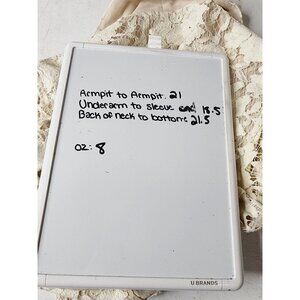 Armpit to Armpit. 21
Underarm to sleeve 18.5
Back of neck to bottom: 21.5
oz: 8
U BRANDS